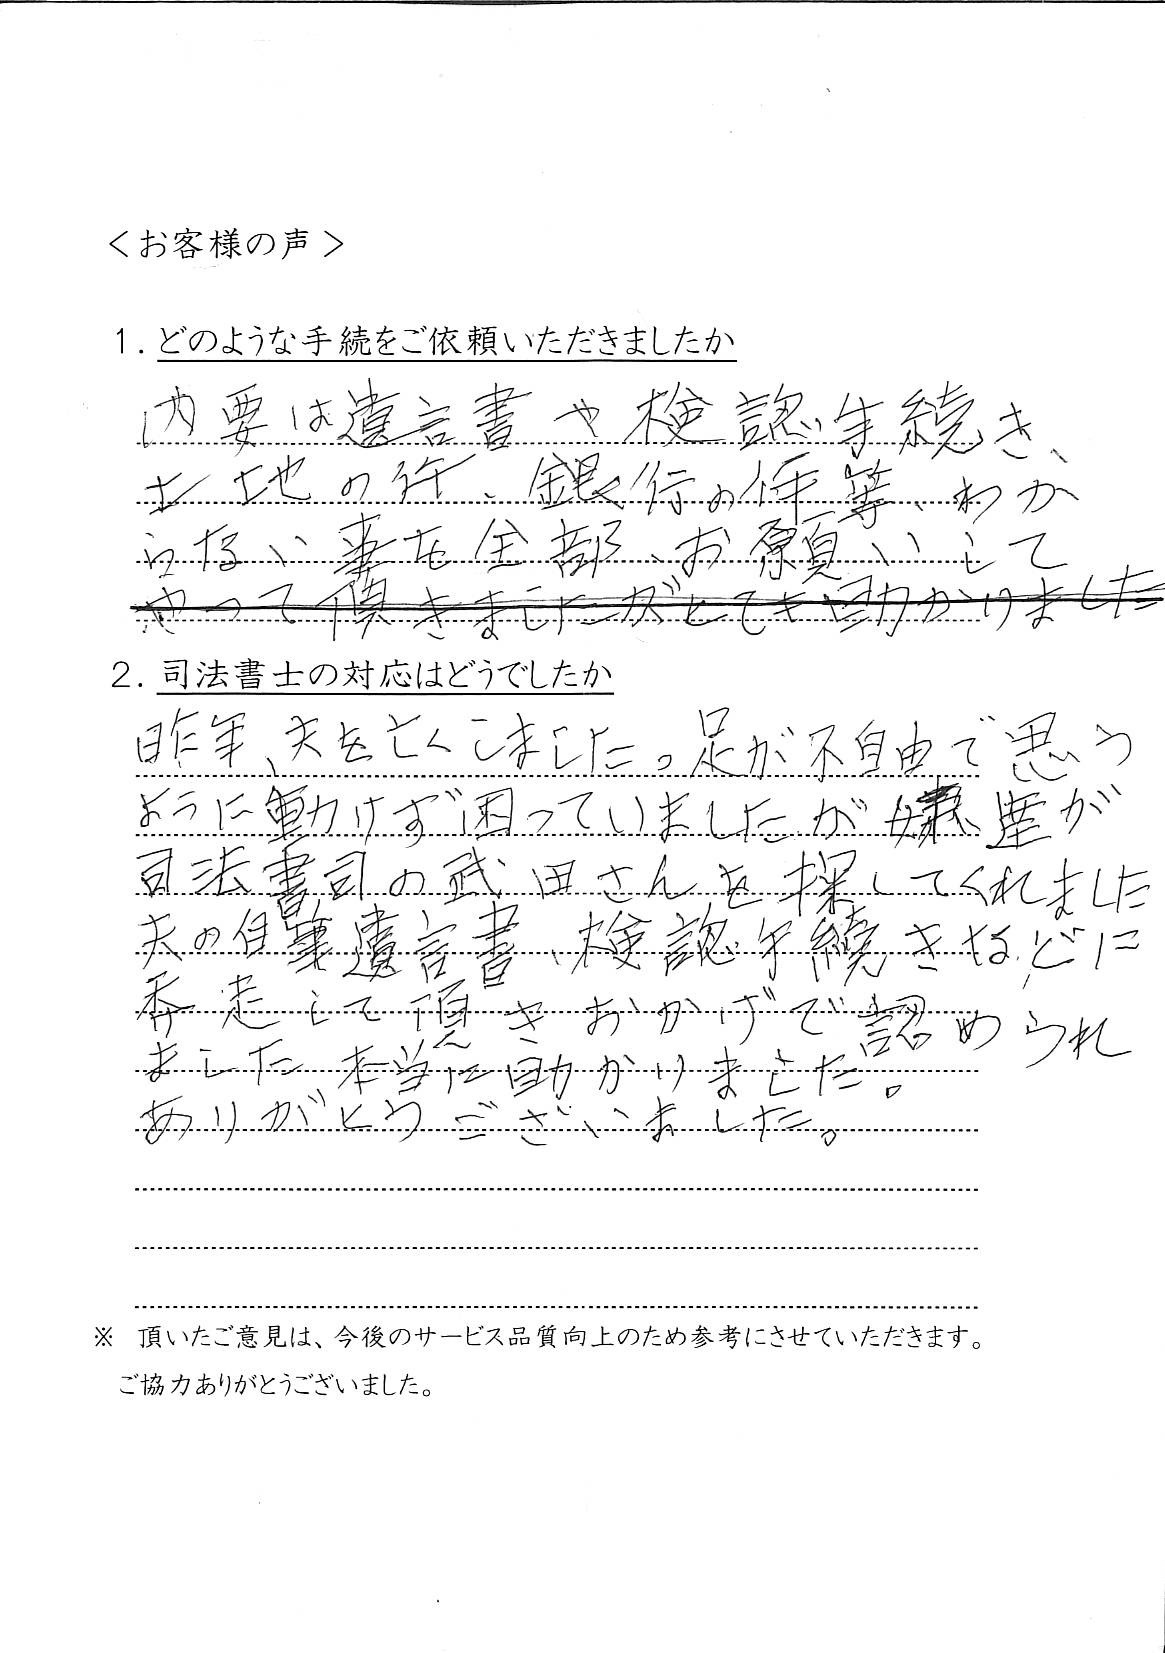 ＜お客様の声＞
1. どのような手続をご依頼いただきましたか
内要は遺言書や検認手続き、
土地の件、銀行の件等、わか
らない事を全部、お願いして
やって頂きましたがとても助かりました
2. 司法書士の対応はどうでしたか
昨年、夫を亡くしました。足が不自由で思う
ように動けず困っていましたが 達が
司法書司の武田さんを探してくれました
夫の自筆遺言書、検認手続きなどに
奔走して頂きおかげで認められ
ました、本当に助かりました。
ありがとうございました。
※　頂いたご意見は、今後のサービス品質向上のため参考にさせていただきます。
ご協力ありがとうございました。